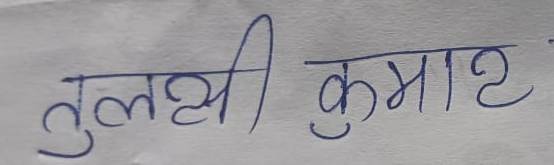 तुलसी कुमार